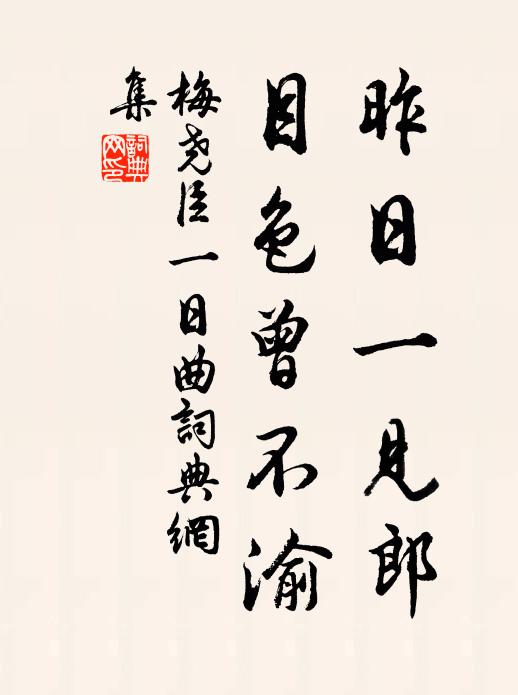 昨日一見郎
目色曾不渝
梅堯臣一日曲詞典網
集
詞典
网印